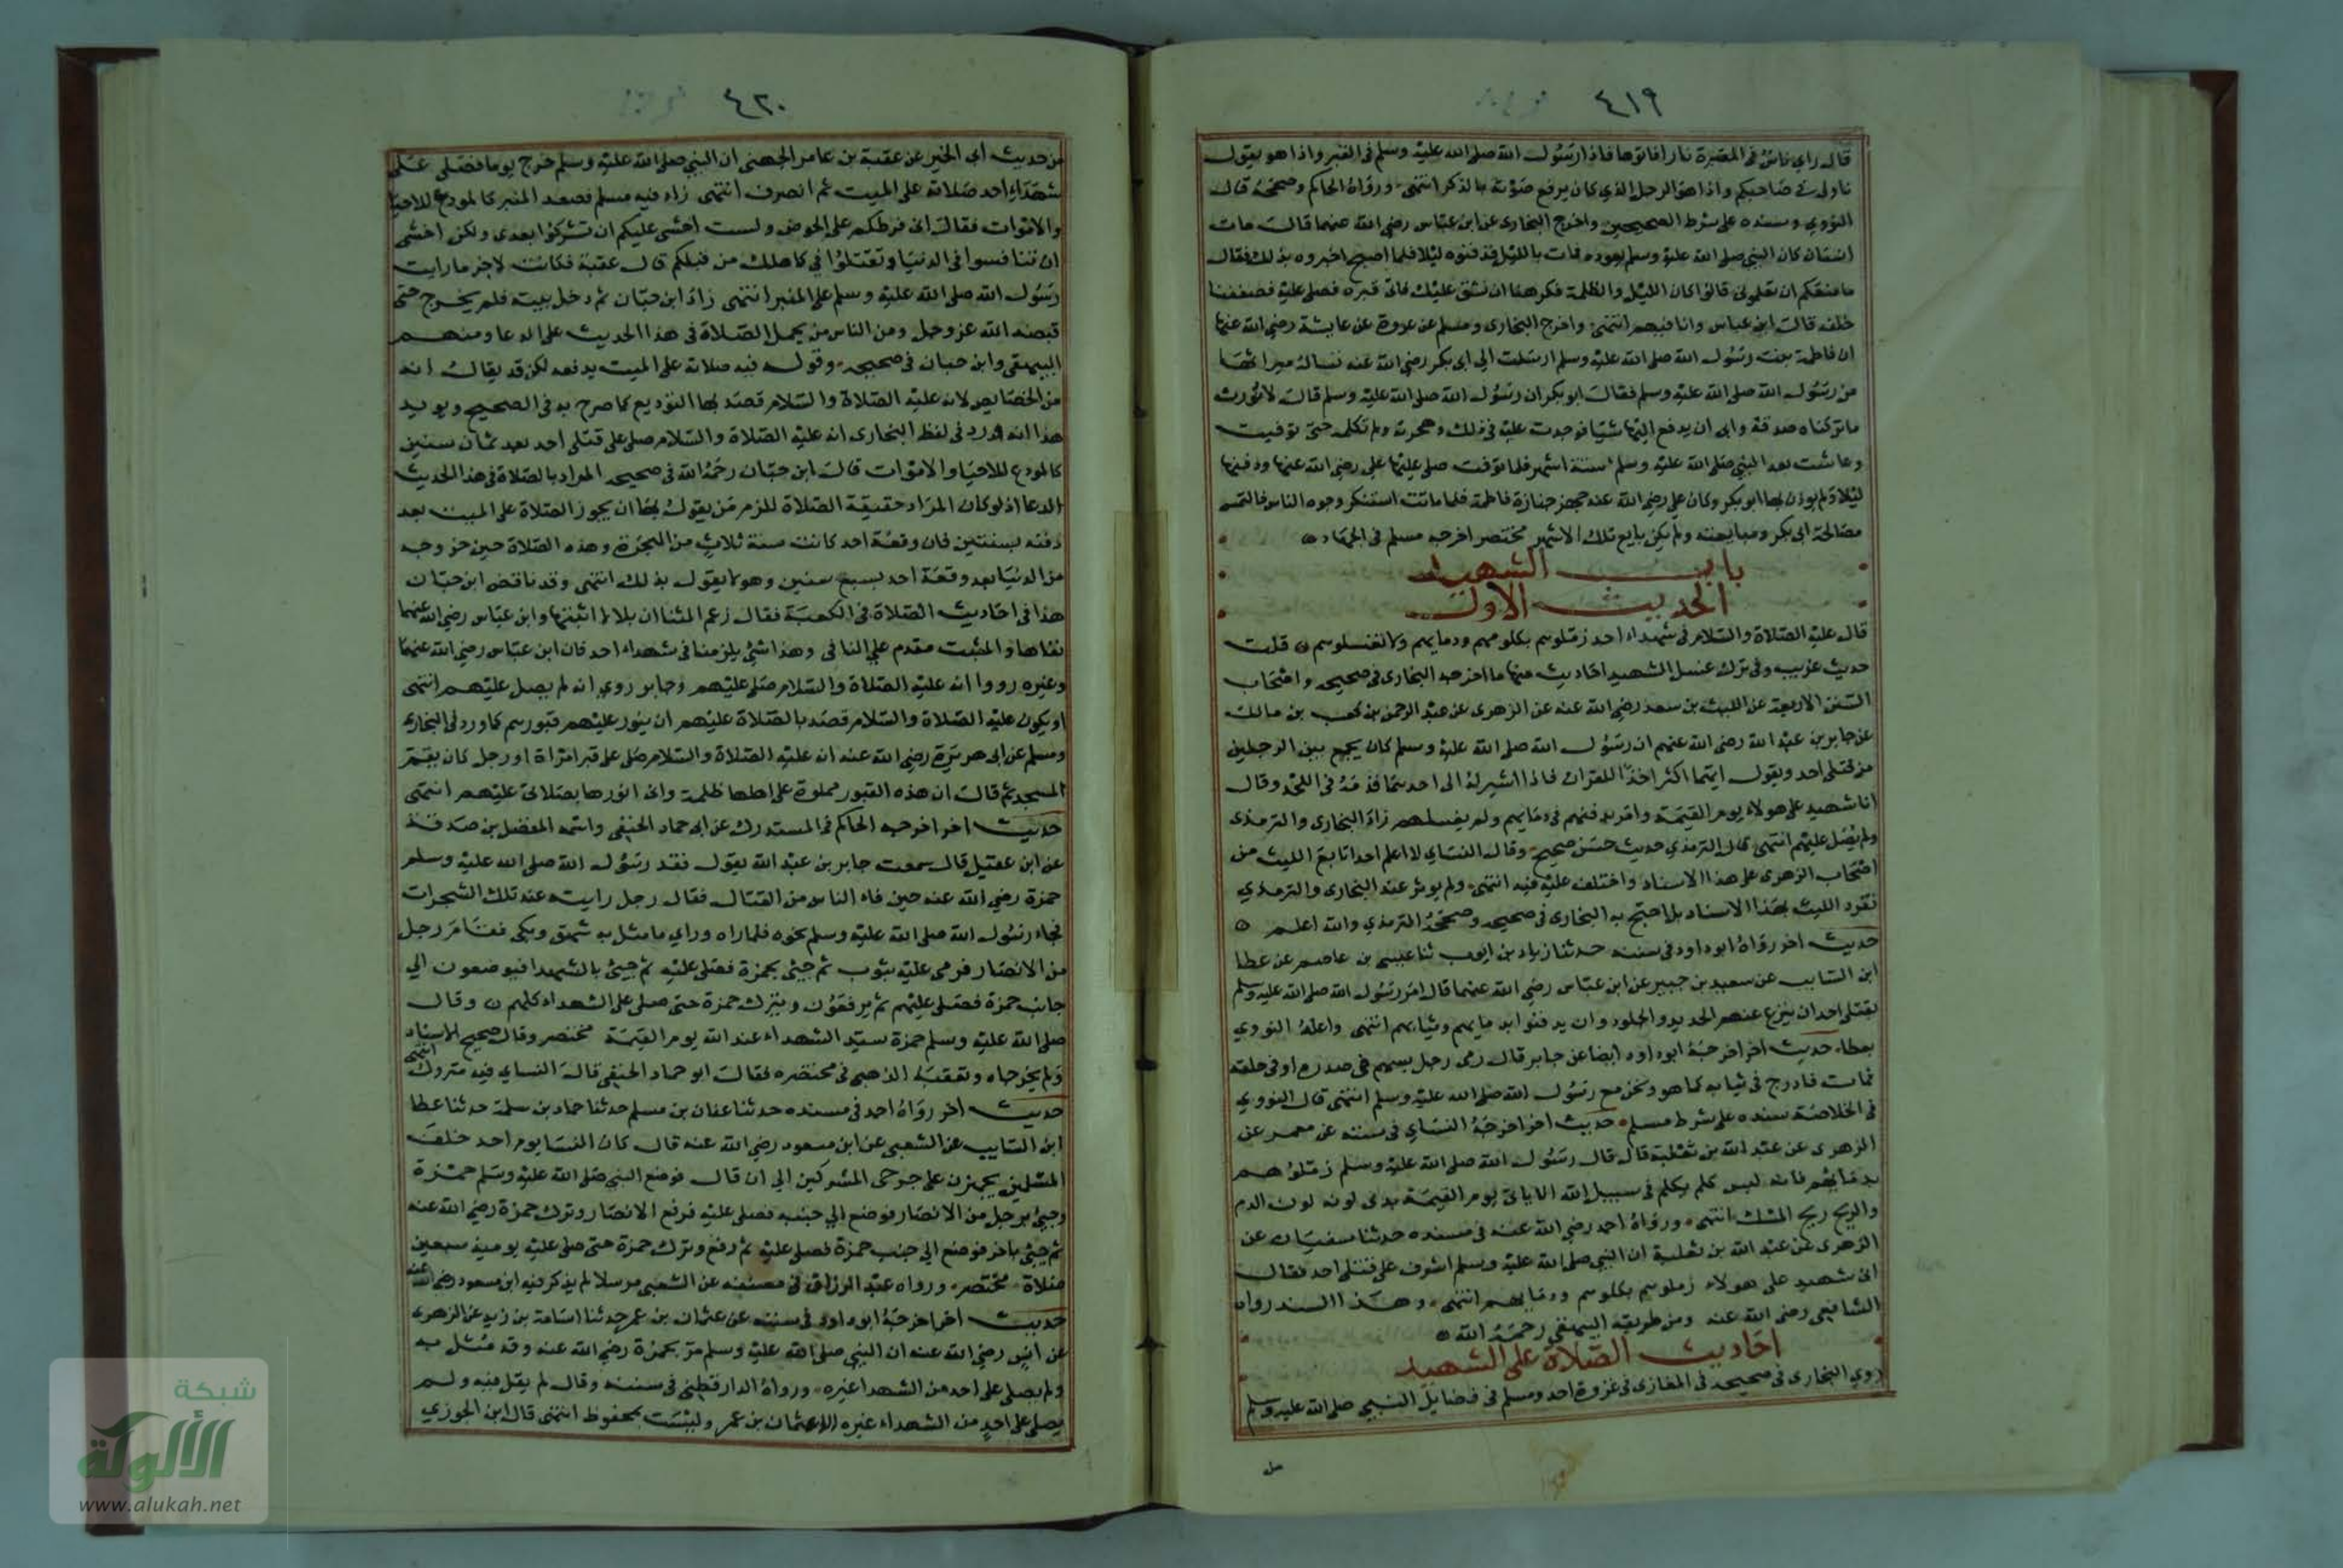 ٤١٩
قال راي ناس في المقبرة نارا فاتوها فاذا رسول الله صلى الله عليه وسلم في القبر واذا هو يقول
ناولوني صاحبكم واذا هو الرجل الذي كان يرفع صوته بالذكر انتهى ورواه الحاكم وصححه قال
النووي وسنده على شرط الصحيحين واخرج البخاري عن ابن عباس رضي الله عنهما قال مات
انسان كان النبي صلى الله عليه وسلم يعوده فمات بالليل فدفنوه ليلا فلما اصبح اخبروه بذلك فقال
ما منعكم ان تعلموني قالوا كان الليل والظلمة فكرهنا ان نشق عليك فاتى قبره فصلى عليه فصففنا
خلفه قال ابن عباس وانا فيهم انتهى واخرج البخاري ومسلم عن عروة عن عايشة رضي الله عنها
ان فاطمة بنت رسول الله صلى الله عليه وسلم ارسلت الى ابي بكر رضي الله عنه تساله ميراثها
من رسول الله صلى الله عليه وسلم فقال ابو بكر ان رسول الله صلى الله عليه وسلم قال لا نورث
ما تركناه صدقة وابى ان يدفع اليها شيا فوجدت عليه في ذلك وهجرته ولم تكلمه حتى توفيت
وعاشت بعد النبي صلى الله عليه وسلم ستة اشهر فلما توفت صلى عليها علي رضي الله عنها ودفنها
ليلا ولم يوذن بها ابو بكر وكان علي رضي الله عنه جهز جنازة فاطمة فلما ماتت استنكر وجوه الناس فالتمس
مصالحة ابي بكر ومبايعته ولم يكن بايع تلك الاشهر مختصر اخرجه مسلم في الجهاد
باب الشهيد
الحديث الاول
قال عليه الصلاة والسلام في شهداء احد زملوهم بكلومهم ودمايهم ولا تغسلوهم قلت
حديث غريب وفي ترك غسل الشهيد احاديث منها ما اخرجه البخاري في صحيحه واصحاب
السنن الاربعة عن الليث بن سعد رضي الله عنه عن الزهري عن عبد الرحمن بن كعب بن مالك
عن جابر بن عبد الله رضي الله عنهم ان رسول الله صلى الله عليه وسلم كان يجمع بين الرجلين
من قتلى احد ويقول ايهما اكثر اخذا للقران فاذا اشير له الى احدهما قدمه في اللحد وقال
انا شهيد على هولاء يوم القيمة وامر بدفنهم في دمايهم ولم يغسلهم زاد البخاري والترمذي
ولم يصل عليهم انتهى قال الترمذي حديث حسن صحيح وقال النساي لا اعلم احدا تابع الليث من
اصحاب الزهري على هذا الاسناد واختلف عليه فيه انتهى ولم يوثر عند البخاري والترمذي
تفرد الليث بهذا الاسناد بل احتج به البخاري في صحيحه وصححه الترمذي والله اعلم
حديث اخر رواه ابو داود في سننه حدثنا زياد بن ايوب ثنا عيسى بن عاصم عن عطا
ابن السايب عن سعيد بن جبير عن ابن عباس رضي الله عنهما قال امر رسول الله صلى الله عليه وسلم
بقتلى احد ان ينزع عنهم الحديد والجلود وان يدفنوا بدمايهم وثيابهم انتهى واعله النووي
بعطاء حديث اخر اخرجه ابو داود ايضا عن جابر قال رمى رجل بسهم في صدره او في حلقه
فمات فادرج في ثيابه كما هو ونحن مع رسول الله صلى الله عليه وسلم انتهى قال النووي
في الخلاصة سنده على شرط مسلم حديث اخر اخرجه النساي في سننه عن معمر عن
الزهري عن عبد الله بن ثعلبة قال قال رسول الله صلى الله عليه وسلم زملوهم
بدمايهم فانه ليس كلم يكلم في سبيل الله الا ياتي يوم القيمة يدمى لونه لون الدم
والريح ريح المسك انتهى ورواه احمد رضي الله عنه في مسنده حدثنا سفيان عن
الزهري عن عبد الله بن ثعلبة ان النبي صلى الله عليه وسلم اشرف على قتلى احد فقال
اني شهيد على هولاء زملوهم بكلومهم ودمايهم انتهى وهذا السند رواه
الشافعي رضي الله عنه ومن طريقه البيهقي رحمه الله
احاديث الصلاة على الشهيد
روي البخاري في صحيحه في المغازي في غزوة احد ومسلم في فضايل النبي صلى الله عليه وسلم
٤٢٠
من حديث ابي الخير عن عقبة بن عامر الجهني ان النبي صلى الله عليه وسلم خرج يوما فصلى على
شهداء احد صلاته على الميت ثم انصرف انتهى زاد فيه مسلم فصعد المنبر كالمودع للاحيا
والاموات فقال اني فرطكم على الحوض ولست اخشى عليكم ان تشركوا بعدي ولكن اخشى
ان تنافسوا في الدنيا وتقتتلوا في كما هلك من قبلكم قال عقبة فكانت لاخر ما رايت
رسول الله صلى الله عليه وسلم على المنبر انتهى زاد ابن حبان ثم دخل بيته فلم يخرج حتى
قبضه الله عز وجل ومن الناس من يحمل الصلاة في هذا الحديث على الدعا ومنهم
البيهقي وابن حبان في صحيحه وقوله فيه صلاته على الميت يدفعه لكن قد يقال انه
من الخصايص لانه عليه الصلاة والسلام قصد بها التوديع كما صرح به في الصحيح ويويد
هذا انه ورد في لفظ البخاري انه عليه الصلاة والسلام صلى على قتلى احد بعد ثمان سنين
كالمودع للاحيا والاموات قال ابن حبان رحمه الله في صحيحه المراد بالصلاة في هذا الحديث
الدعا اذ لو كان المراد حقيقة الصلاة للزم من يقول بها ان يجوز الصلاة على الميت بعد
دفنه بسنتين فان وقعة احد كانت سنة ثلاث من الهجرة وهذه الصلاة حين خروجه
من الدنيا بعد وقعة احد بسبع سنين وهو لا يقول بذلك انتهى وقد ناقض ابن حبان
هذا في احاديث الصلاة في الكعبة فقال زعم المثنا ان بلالا اثبتها وابن عباس رضي الله عنهما
نفاها والمثبت مقدم على النافي وهذا شي يلزمنا في شهداء احد فان ابن عباس رضي الله عنهما
وغيره رووا انه عليه الصلاة والسلام صلى عليهم وجابر روي انه لم يصل عليهم انتهى
او يكون عليه الصلاة والسلام قصد بالصلاة عليهم ان ينور عليهم قبورهم كما ورد في البخاري
ومسلم عن ابي هريرة رضي الله عنه انه عليه الصلاة والسلام صلى على قبر امراة او رجل كان يقم
المسجد ثم قال ان هذه القبور مملوة على اهلها ظلمة واني انورها بصلاتي عليهم انتهى
حديث اخر اخرجه الحاكم في المستدرك عن ابي حماد الحنفي واسمه المفضل بن صدقة
عن ابن عقيل قال سمعت جابر بن عبد الله يقول فقد رسول الله صلى الله عليه وسلم
حمزة رضي الله عنه حين فاء الناس من القتال فقال رجل رايته عند تلك الشجرات
فجاء رسول الله صلى الله عليه وسلم نحوه فلما راه وراي ما مثل به شهق وبكى فقام رجل
من الانصار فرمى عليه بثوب ثم جئ بحمزة فصلى عليه ثم جئ بالشهدا فيوضعون الي
جانب حمزة فصلى عليهم ثم يرفعون ويترك حمزة حتى صلى على الشهداء كلهم وقال
صلى الله عليه وسلم حمزة سيد الشهداء عند الله يوم القيمة مختصر وقال صحيح الاسناد
ولم يخرجاه وتعقبه الذهبي في مختصره فقال ابو حماد الحنفي قال النساي فيه متروك انتهى
حديث اخر رواه احمد في مسنده حدثنا عفان بن مسلم حدثنا حماد بن سلمة حدثنا عطا
ابن السايب عن الشعبي عن ابن مسعود رضي الله عنه قال كان النسا يوم احد خلف
المسلمين يجهزن على جرحى المشركين الي ان قال فوضع النبي صلى الله عليه وسلم حمزة
وجئ برجل من الانصار فوضع الي جنبه فصلى عليه فرفع الانصار وترك حمزة رضي الله عنه
ثم جئ باخر فوضع الي جنب حمزة فصلى عليه ثم رفع وترك حمزة حتى صلى عليه يوميذ سبعين
صلاة مختصر ورواه عبد الرزاق في مصنفه عن الشعبي مرسلا لم يذكر فيه ابن مسعود رضي الله عنه
حديث اخر اخرجه ابو داود في سننه عن عثمان بن عمر حدثنا اسامة بن زيد عن الزهري
عن انس رضي الله عنه ان النبي صلى الله عليه وسلم مر بحمزة رضي الله عنه وقد مثل به
ولم يصلي على احد من الشهدا غيره ورواه الدارقطني في سننه وقال لم يقل فيه ولم
يصلي على احد من الشهداء غيره الا عثمان بن عمر وليست بمحفوظ انتهى قال ابن الجوزي
شبكة
الألوكة
www.alukah.net